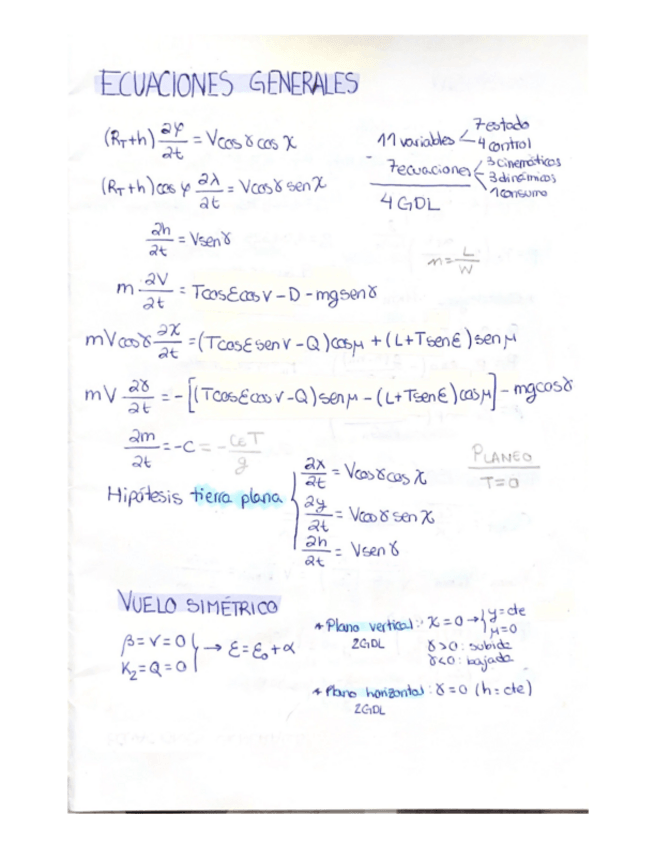 ECUACIONES GENERALES
(R_T+h) ∂φ/∂t = Vcosγ cos χ
11 variables < 7 estado
4 control
(R_T+h) cos φ ∂λ/∂t = Vcosγ sen χ
- 7 ecuaciones < 3 cinemáticas
3 dinámicas
1 consumo
4 GDL
∂h/∂t = Vsenγ
n = L/W
m · ∂V/∂t = TcosƐcosν - D - mgsenγ
mVcosγ ∂χ/∂t = (TcosƐsenν - Q)cosμ + (L+TsenƐ)senμ
mV · ∂γ/∂t = -[(TcosƐcosν - Q)senμ - (L+TsenƐ)cosμ] - mgcosγ
∂m/∂t = -C = - C_E T/g
PLANEO
T=0
Hipótesis tierra plana { ∂x/∂t = Vcosγcos χ
∂y/∂t = Vcosγ sen χ
∂h/∂t = Vsenγ
VUELO SIMÉTRICO
β = ν = 0
K₂ = Q = 0 } → Ɛ = Ɛ₀ + α
* Plano vertical: χ = 0 → { y = cte
μ = 0
2GDL
γ > 0 : subida
γ < 0 : bajada
* Plano horizontal: γ = 0 (h = cte)
2GDL